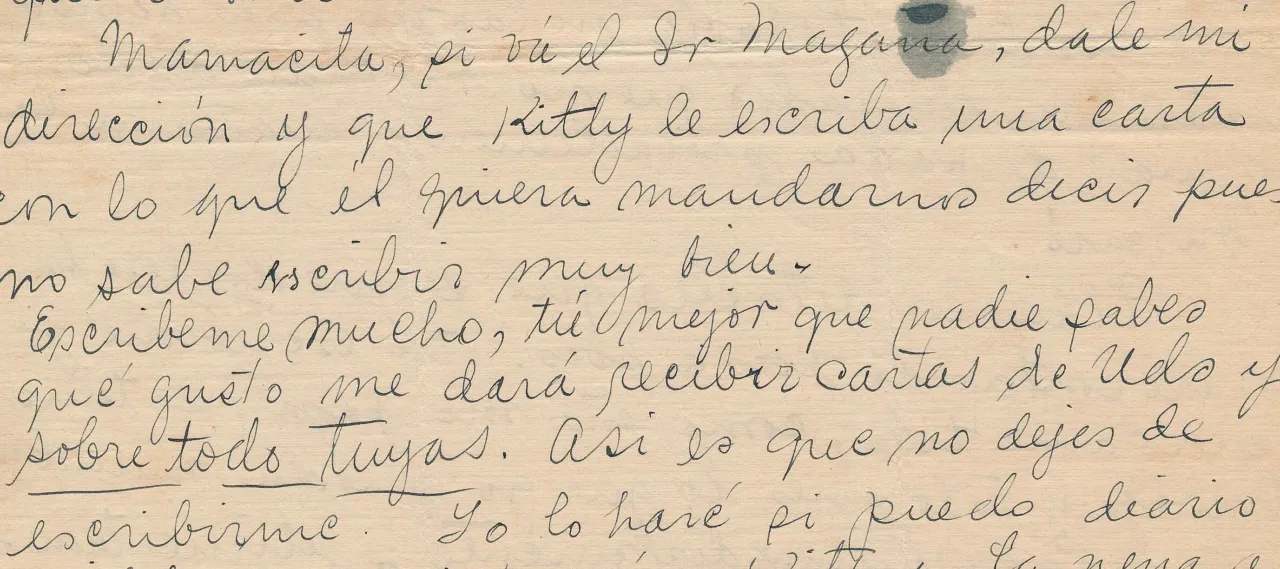 Mamacita, si vá el Sr Magana, dale mi
dirección y que Kitty le escriba una carta
con lo que él quiera mandarnos decir pues
no sabe escribir muy bien.
Escribeme mucho, tú mejor que nadie sabes
qué gusto me dará recibir cartas de Uds y
sobre todo tuyas. Asi es que no dejes de
escribirme. Yo lo haré si puedo diario
La nena